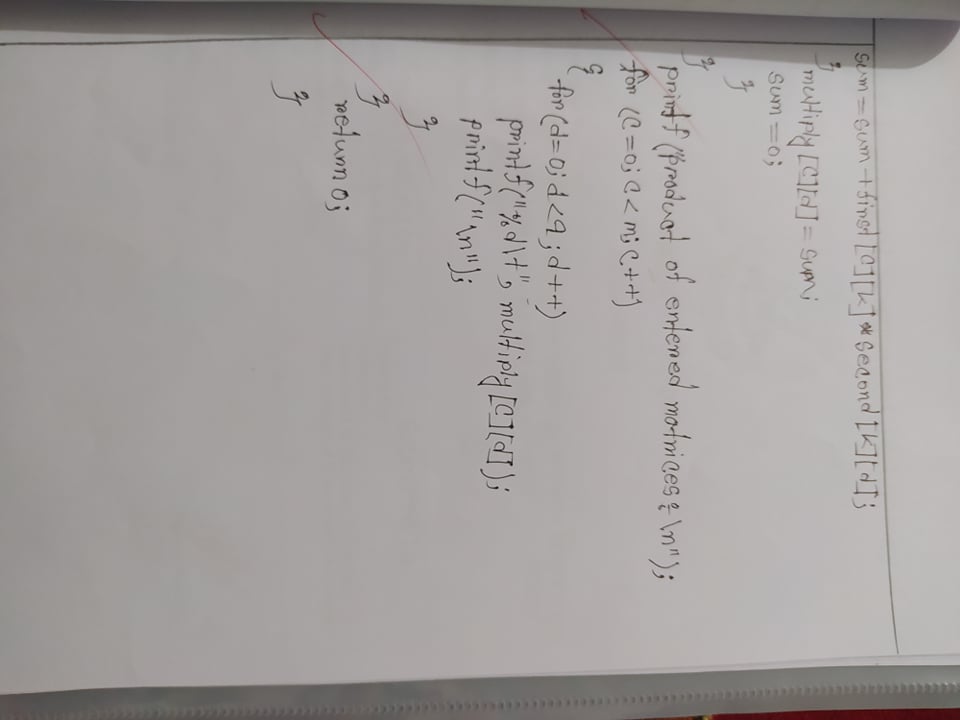 sum = sum + first[c][k] * second[k][d];
}
multiply[c][d] = sum;
sum = 0;
}
}
printf("product of entered matrices:\n");
for (c=0; c<m; c++)
{
for(d=0; d<q; d++)
printf("%d\t", multiply[c][d]);
printf("\n");
}
}
return 0;
}